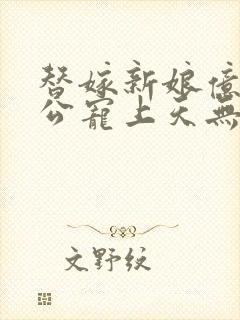 替嫁新娘億
公寵上天無
文野紋